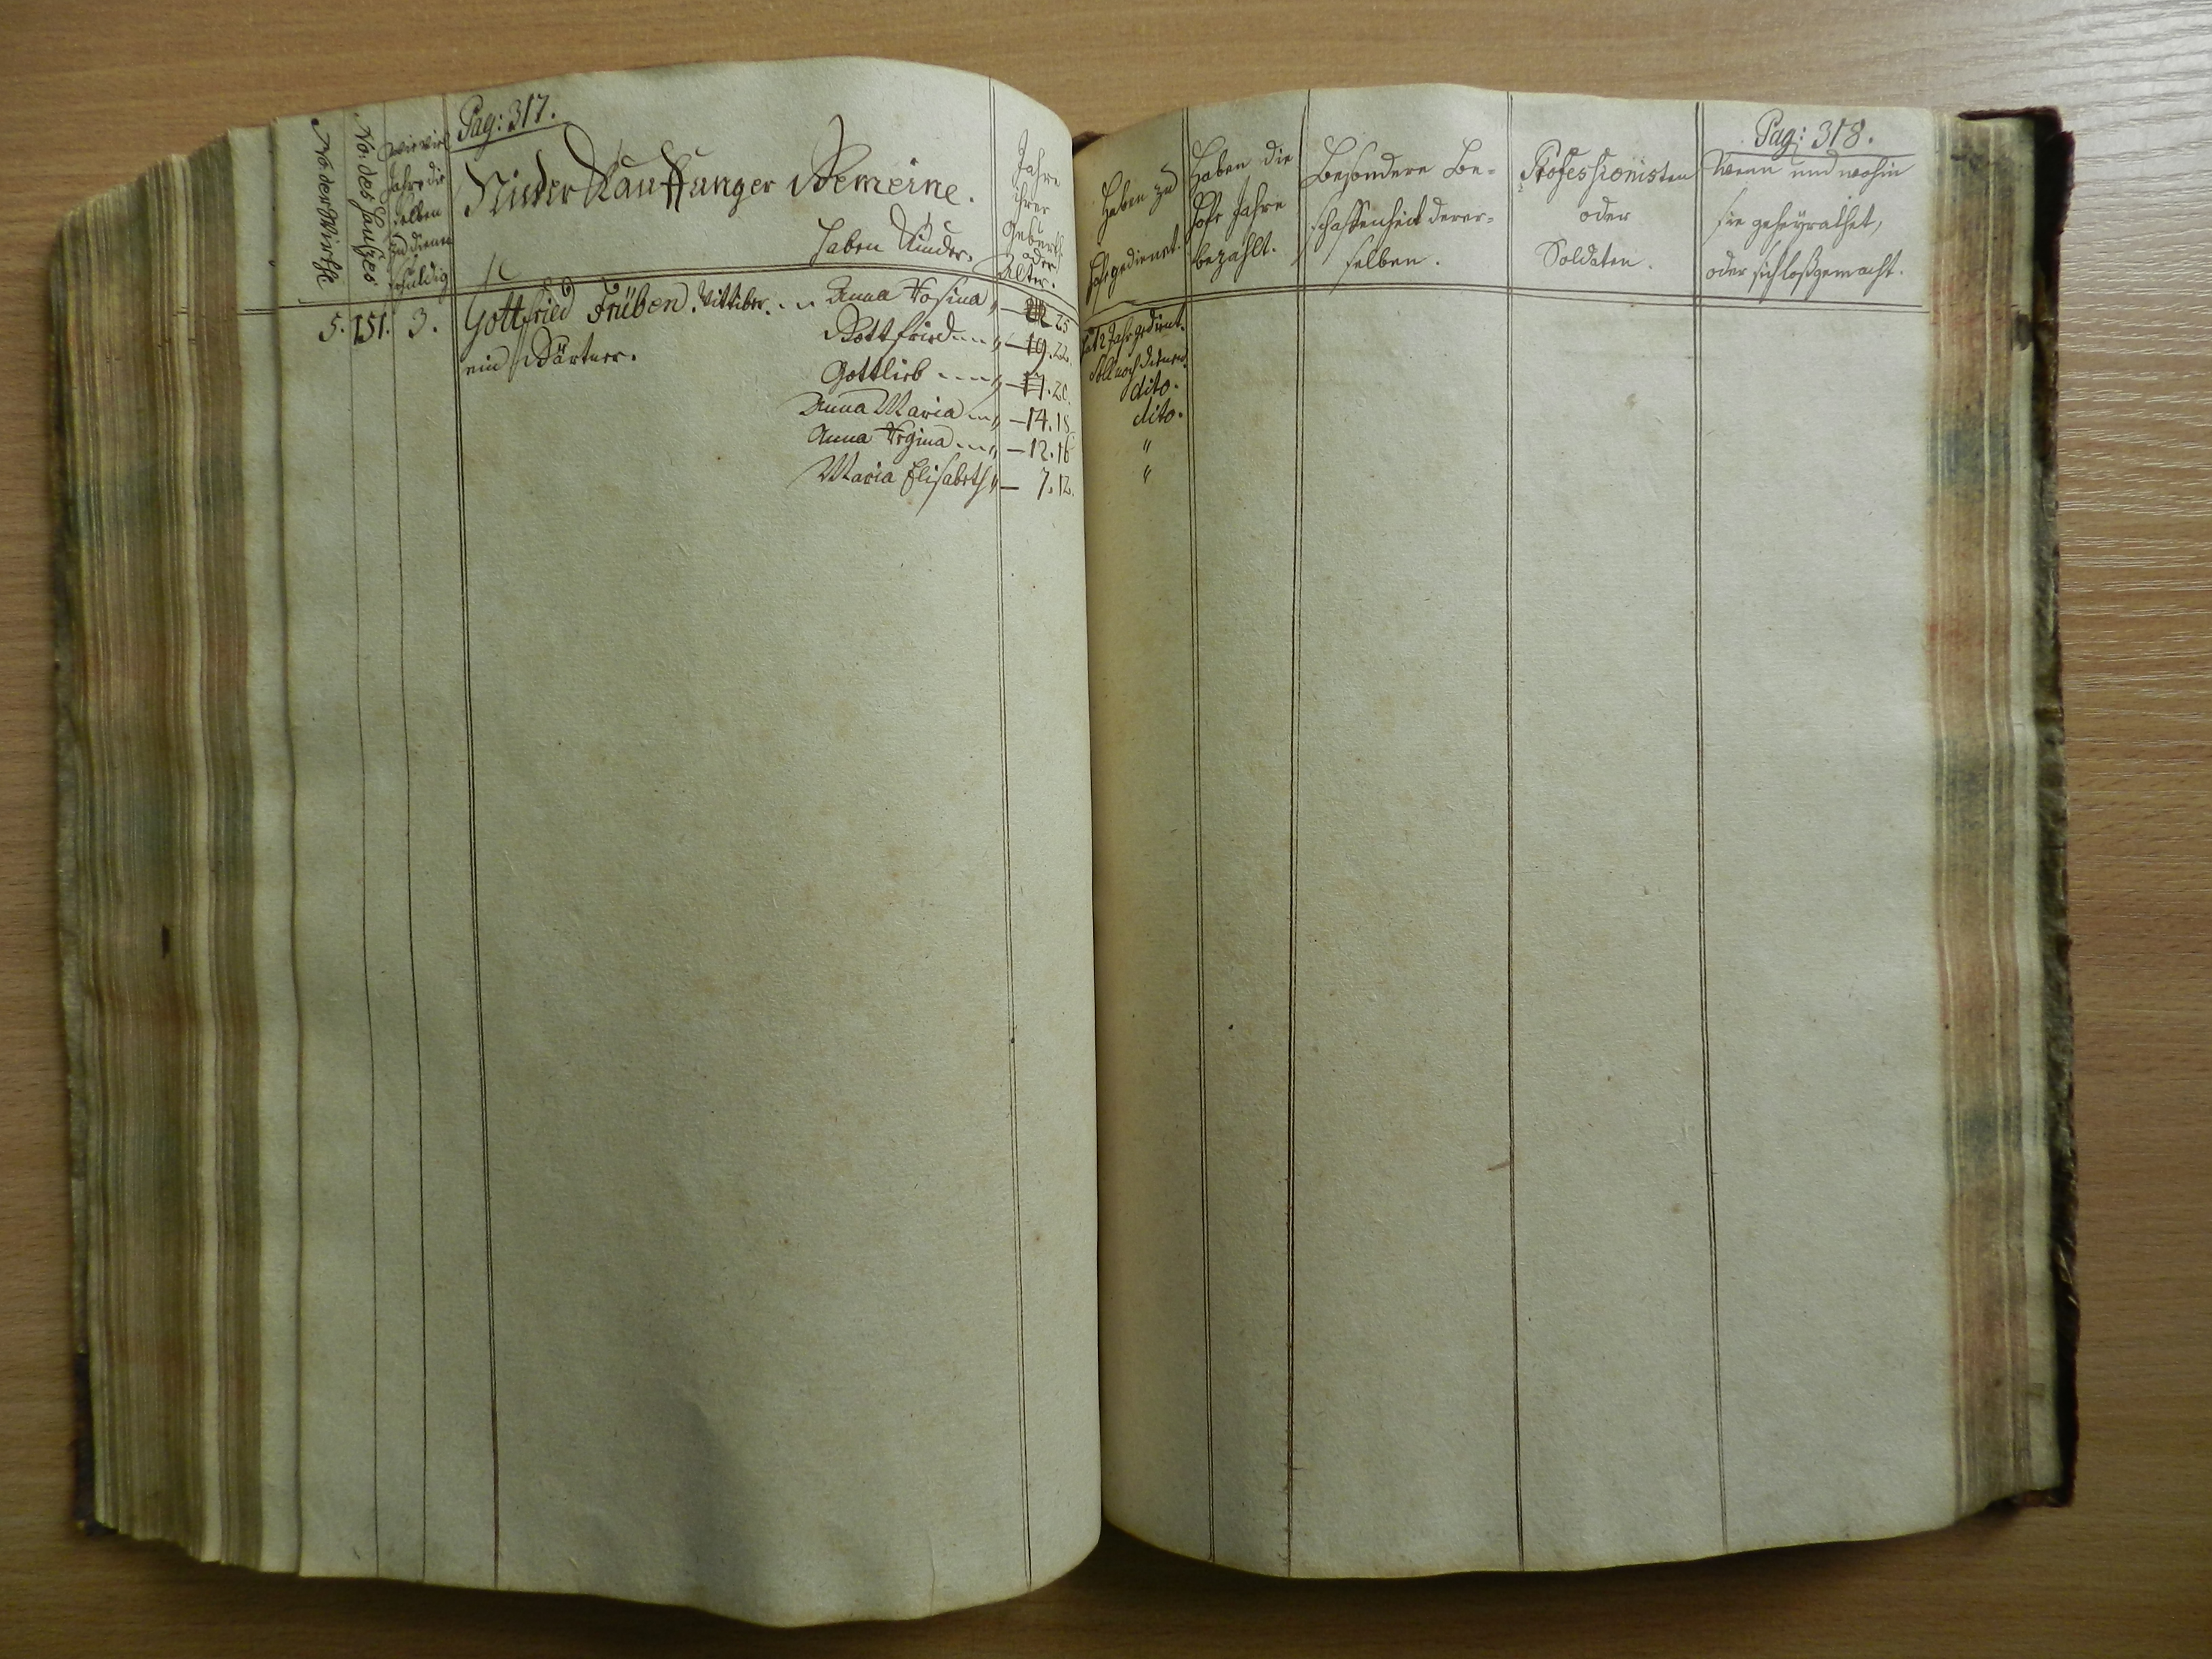 Pag: 317.
No. der Wirthe
No. des Haußes
wie viel
Jahre die
selben
zu dienen
schuldig
Nieder Kauffunger Gemeine.
Haben Kinder.
Jahre
ihrer
Geburth
oder
Alter.
5. 151. 3. Gottfried Früben. Wittiber. Anna Rosina — 25
ein Gärtner.
Gottfried — 19. 22.
Gottlieb — 17. 20.
Anna Maria — 14. 18.
Anna Regina — 12. 16
Maria Elisabeth — 7. 12.
Pag: 318.
Haben zu
Hofe gedienet.
Haben die
Hofe Jahre
bezahlt.
Besondere Be-
schaffenheit derer-
selben.
Professionisten
oder
Soldaten.
Wenn und wohin
sie geheyrathet,
oder sich loßgemacht.
hat 2 Jahr gedient.
Soll noch dienen.
dito.
dito.
"
"